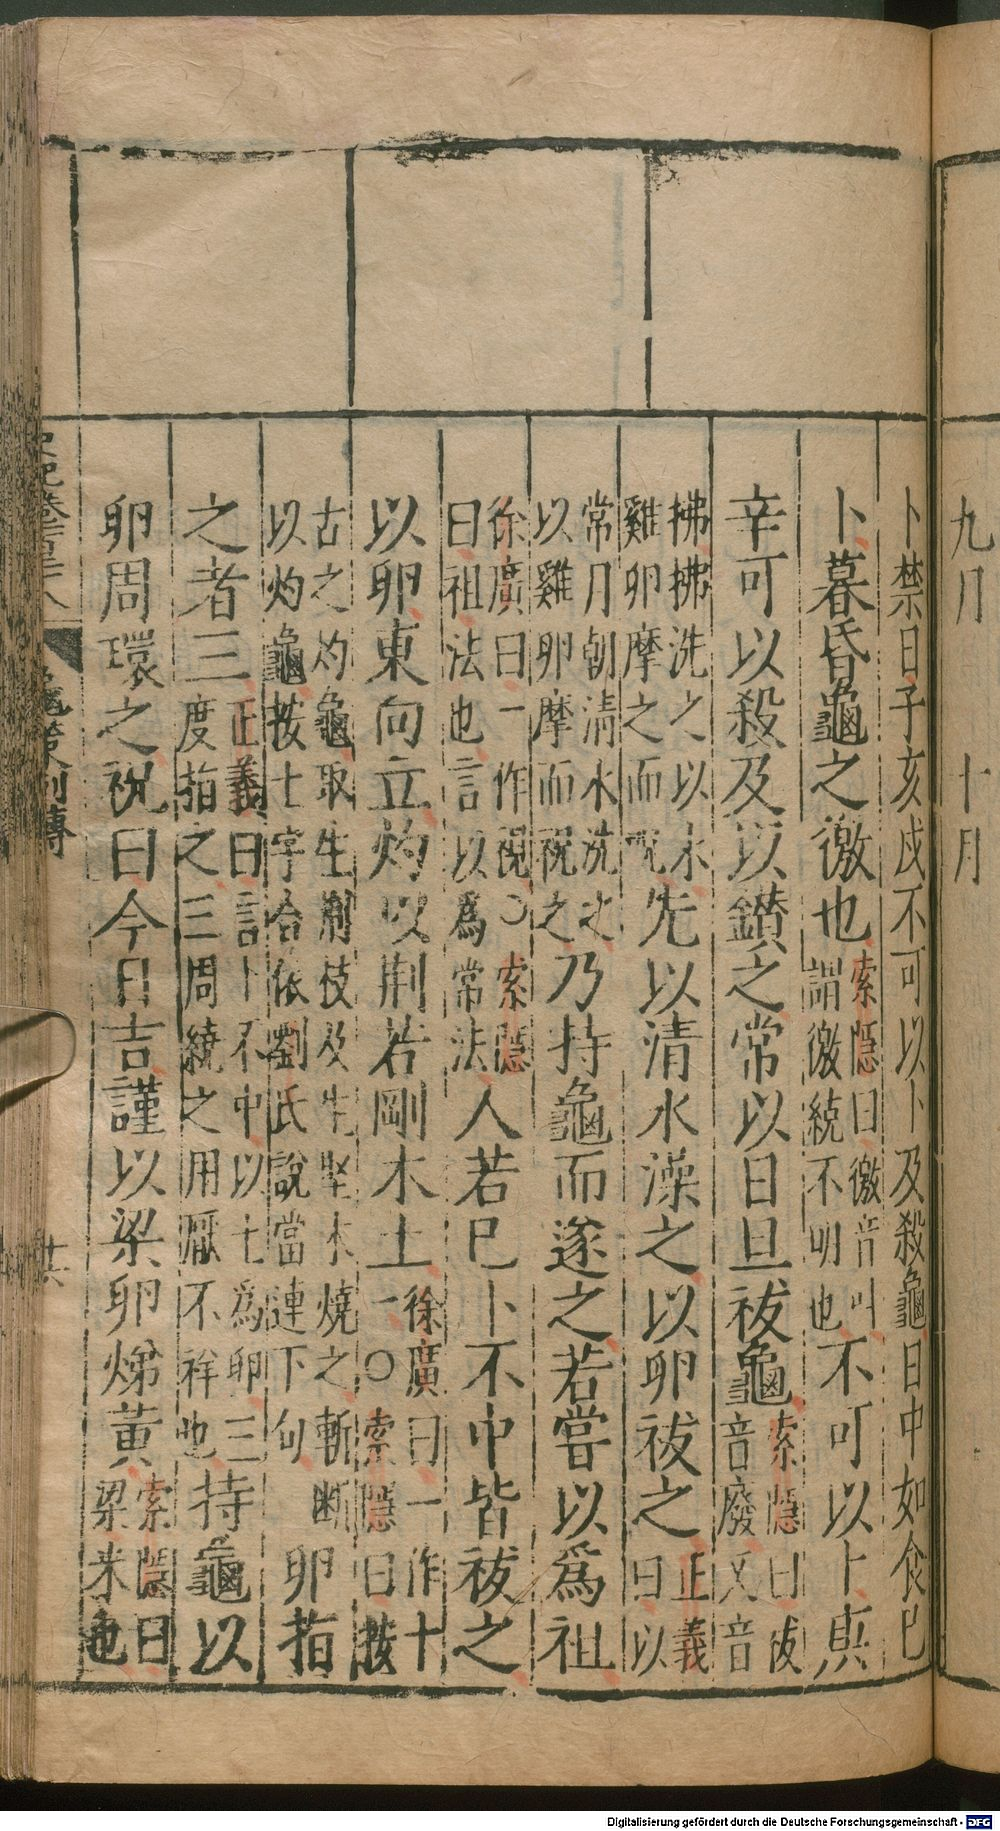 九月　十月
卜禁日子亥戌不可以卜及殺龜日中如食已
卜暮昏龜之徼也索隱曰徼音叫謂徼繞不明也不可以卜庚
辛可以殺及以鑽之常以日旦祓龜索隱曰祓音廢又音
拂拂洗之以水雞卵摩之而呪先以清水澡之以卵祓之正義曰以
常月朝清水洗之以雞卵摩而祝之乃持龜而遂之若嘗以爲祖
徐廣曰一作視〇索隱曰祖法也言以爲常法人若已卜不中皆祓之
以卵東向立灼以荆若剛木土徐廣曰一作十一〇索隱曰按
古之灼龜取生荆枝及生堅木燒之斬断以灼龜按士字合依劉氏說當連下句卵指
之者三正義曰言卜不中以土爲卵三度指之三周繞之用厭不祥也持龜以
卵周環之祝曰今日吉謹以粱卵焍黃索隱曰粱米也
龜策列傳
廿六
Digitalisierung gefördert durch die Deutsche Forschungsgemeinschaft - DFG